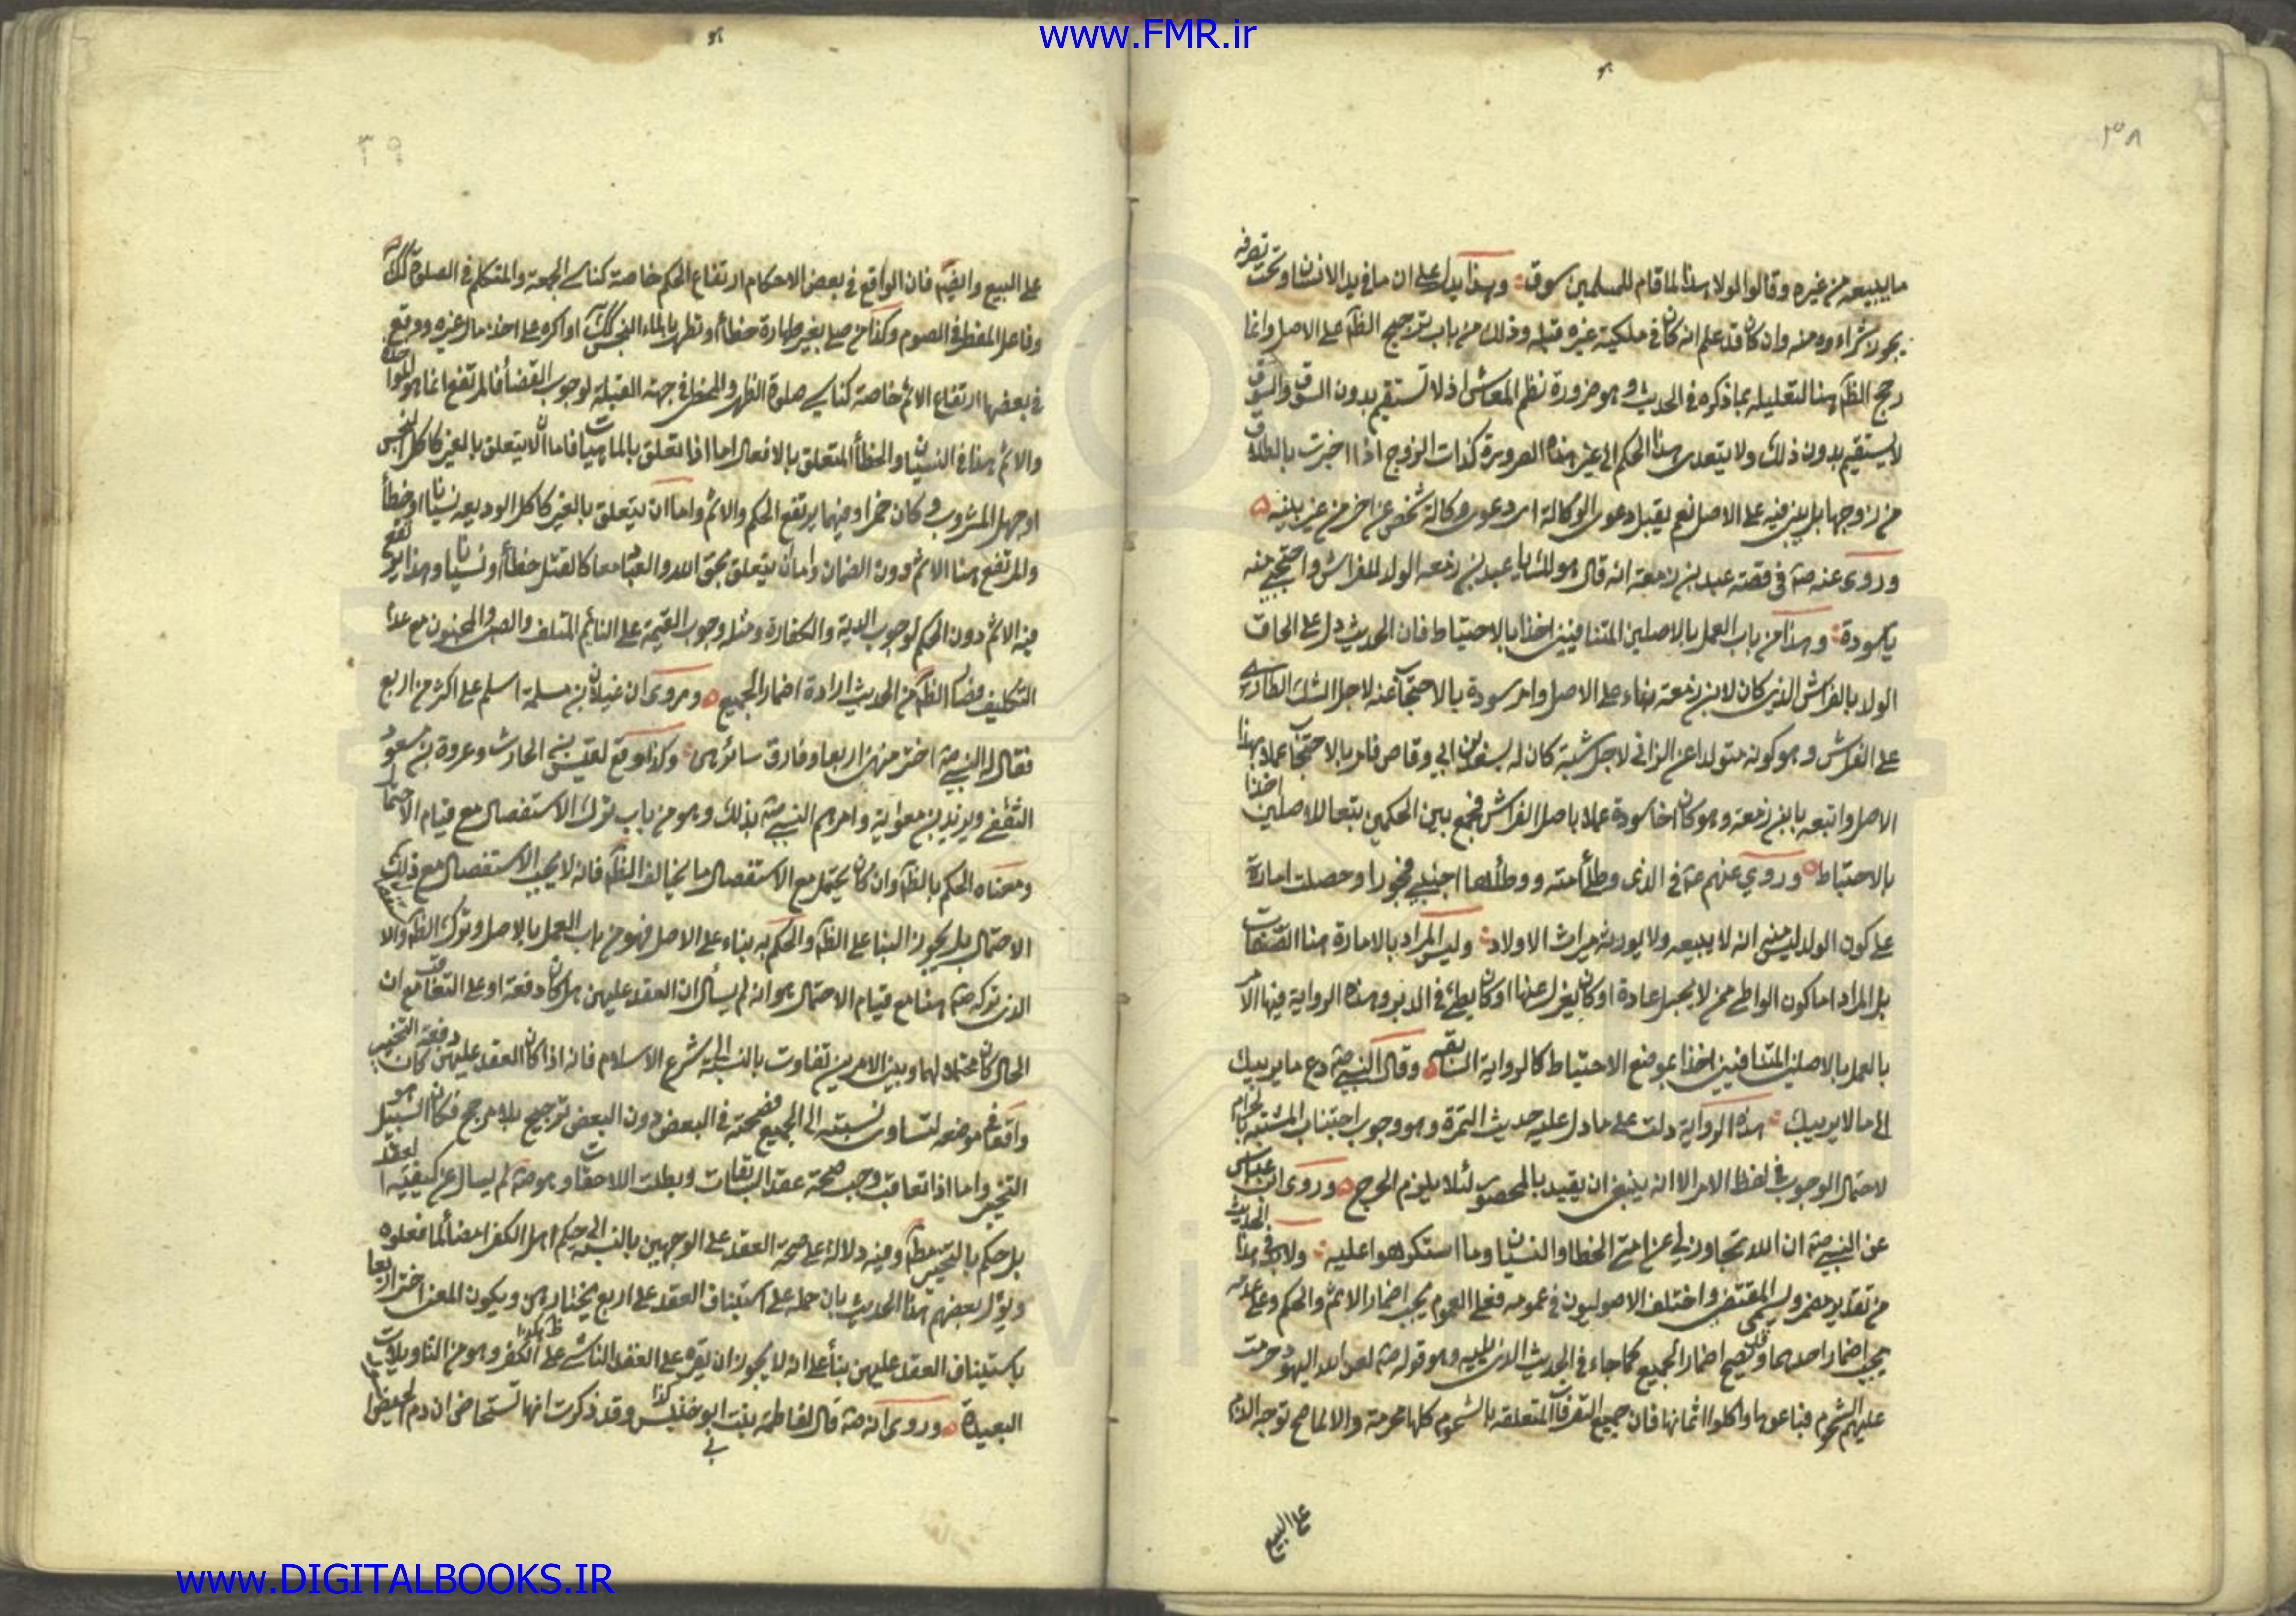 www.FMR.ir
٣٨
ما بيد بيعه من غيره وقالوا لولا هذا لما قام للمسلمين سوق وهذا يدل على ان ما في يد الانسان او تحت تصرفه
يجوز شراءه منه وان كان قد علم انه كان في ملكية غيره قبله وذلك من باب ترجيح الظ على الاصل وانما
رجح الظ هنا لتعليله بما ذكره في الحديث وهو ضرورة نظم المعاش اذ لا تستقيم بدون السوق والسوق
لا يستقيم بدون ذلك ولا يتعدى هذا الحكم الى غير هذه الصورة كذات الزوج اذا اخبرت بالطلاق
من زوجها بل يبنى فيه على الاصل نعم يقبل دعوى الوكالة اى دعوى وكالة شخص عن اخر من غير بينه
وروى عنه صه في قصة عبد بن زمعة انه قال هو لك يا عبد بن زمعه الولد للفراش واحتجبى منه
يا سودة وهذا من باب العمل بالاصلين المتنافيين اخذا بالاحتياط فان الحديث دل على الحاق
الولد بالفراش الذى كان لابن زمعة بناء على الاصل وامر سودة بالاحتجاب عنه لاجل الشك الطارى
على الفراش وهو كونه متولدا عن الزانى لاجل شبه كان له بسعد بن ابي وقاص فامر بالاحتجاب عملا بهذا
الاصل واتبعه بابن زمعة وهو كان اخا سودة عملا باصل الفراش فجمع بين الحكمين تبعا للاصلين اخذا
بالاحتياط وروي عنهم ع في الذى وطأ امته ووطأها اجنبي فجورا وحصلت امارة
على كون الولد ليس منه انه لا يبيعه ولا يورثه ميراث الاولاد وليس المراد بالامارة هنا الصفات
بل المراد اما كون الواطى ممن لا يحبل عادة او كان يعزل عنها او كان يطئ في الدبر وهذه الرواية فيها الامر
بالعمل بالاصلين المتنافيين اخذا بموضع الاحتياط كالرواية السابقه وقال النبي صه دع ما يريبك
الى ما لا يريبك هذه الرواية دلت على ما دل عليه حديث التمرة وهو وجوب اجتناب المشتبه بالحرام
لاحتمال الوجوب في لفظ الامر الا انه ينبغى ان يقيد بالمحصور لئلا يلزم الحرج وروى ابن عباس
عن النبي صه ان الله تجاوز لي عن امتي الخطا والنسيان وما استكرهوا عليه ولابد في هذا الحديث
من تقدير مضمر ويسمى المقتضى واختلف الاصوليون في عمومه فعلى العموم يجب اضمار الاثم والحكم وعلى عدمه
يجب اضمار احدهما وقد يصح اضمار الجميع كما جاء في الحديث الذى يليه وهو قوله صه لعن الله اليهود حرمت
عليهم الشحوم فباعوها واكلوا اثمانها فان جميع التصرفات المتعلقه بالشحوم كلها محرمة والا لما صح توجه الذم
على البيع
٣٩
على البيع وايضا فان الواقع في بعض الاحكام ارتفاع الحكم خاصة كناسى الجمعة والمتكلم في الصلوة كذلك
وفاعل المفطر في الصوم وكذا من صلى بغير طهارة خطأ او تطهر بالماء النجس كذلك او اكره على اخذ مال غيره ووقع
في بعضها ارتفاع الاثم خاصة كناسى صلوة الظهر والمخطى في جهة القبلة لوجوب القضا فالمرتفع انما هو المواخذه
والاثم هذا في النسيان والخطأ المتعلق بالافعال اما اذا تعلق بالماهيات فاما ان لا يتعلق بالغير كاكل النجس
او جهل المشروب وكان خمرا وفيهما يرتفع الحكم والاثم واما ان يتعلق بالغير كاكل الوديعه نسيانا او خطأ
والمرتفع هنا الاثم دون الضمان واما ان يتعلق بحق الله والعباد معا كالقتل خطأ او نسيانا وهذا يرتفع
فيه الاثم دون الحكم لوجوب الدية والكفارة ومثله وجوب القيمة على النائم المتلف والصبى والمجنون مع عدم
التكليف فصار الظ من الحديث ارادة اضمار الجميع وروى ان غيلان بن سلمة اسلم على اكثر من اربع
فقال له النبي صه اختر منهن اربعا وفارق سائرهن وكذا وقع لقيس بن الحارث وعروة بن مسعود
الثقفي ويزيد بن معوية وامرهم النبي صه بذلك وهو من باب ترك الاستفصال مع قيام الاحتمال
ومعناه الحكم بالظ وان كان يحتمل مع الاستفصال ما يخالف الظ فانه لا يجب الاستفصال مع ذلك
الاحتمال بل يجوز البنا على الظ والحكم به بناء على الاصل فهو من باب العمل بالاصل وترك الظ والا
الذى تركه صه هنا مع قيام الاحتمال هو انه لم يسأل ان العقد عليهن هل كان دفعة او على التعاقب مع ان
الحال كان محتملا لهما وبين الامرين تفاوت بالنسبة الى شرع الاسلام فانه اذا كان العقد عليهن دفعة كان التخيير
واقعا في موضعه لتساوى نسبته الى الجميع فصحته في البعض دون البعض ترجيح بلا مرجح فكان السبيل هو
التخيير واما اذا تعاقبت وجب صحة عقد السابقات وبطلت اللاحقات وهو صه لم يسال عن كيفية العقد
بل حكم بالتخيير مطلقا وفيه دلالة على صحة العقد على الوجهين بالنسبة الى حكم اهل الكفر امضا لما فعلوه
ويؤل بعضهم هذا الحديث بان حمله على استيناف العقد على اربع يختارهن ويكون المعنى اختر اربعا
باستيناف العقد عليهن بنأ على انه لا يجوز ان يقره على العقد الناشى على الكفر وهو من التاويلات
البعيدة وروى انه صه قال لفاطمه بنت ابو حنيس وقد ذكرت انها تستحاض ان دم الحيض
www.DIGITALBOOKS.IR